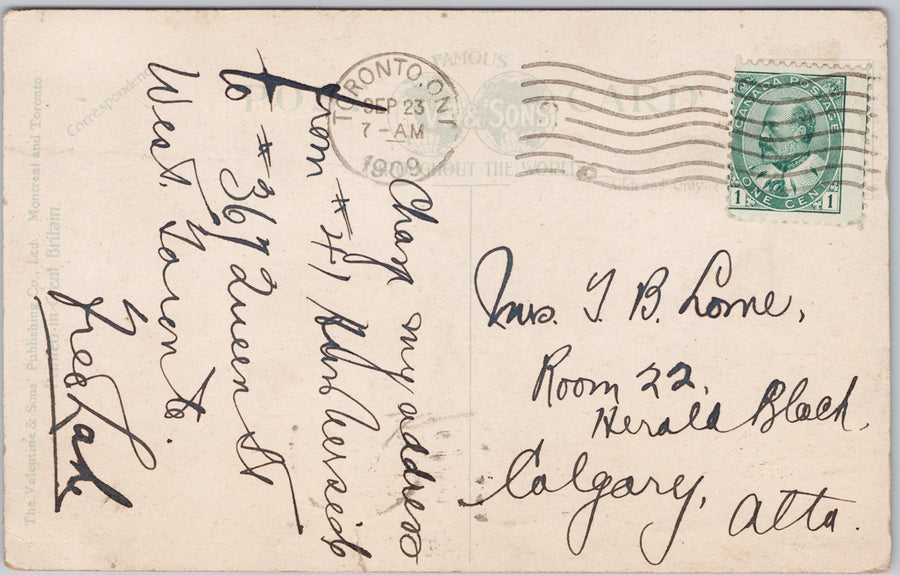 The Valentine & Sons' Publishing Co., Ltd. Montreal and Toronto
Great Britain.
Correspondence
FAMOUS
POST CARD
& SONS
THROUGHOUT THE WORLD
Only.
TORONTO, ONT.
SEP 23
7-AM
1909
CANADA POSTAGE
ONE CENT
1 1
my address
from #41
to #367 Queen St
West. Toronto.
Fred
Mrs. T. B. Lorne,
Room 22,
Herald Block,
Calgary, Alta.